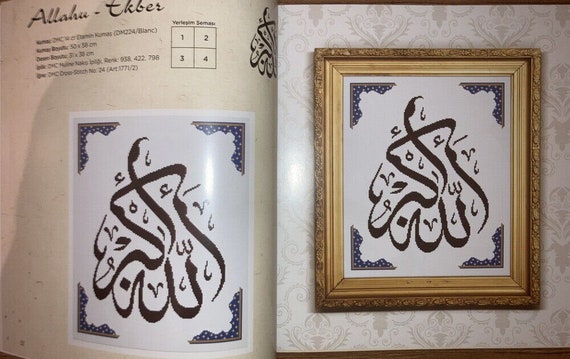 Allahu - Ekber
Kumaş: DMC 14 ct Etamin Kumaş (DM224/Blanc)
Kumaş Boyutu: 50 x 58 cm
Desen Boyutu: 31 x 38 cm
İplik: DMC Muline Nakış İpliği, Renk: 938, 422, 798
İğne: DMC Cross-Stitch No: 24 (Art.1771/2)
Yerleşim Şeması
1 2
3 4
الله أكبر
الله أكبر